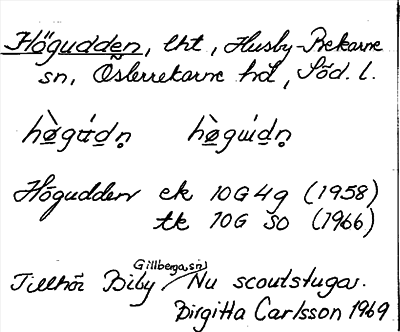 Högudden, lht, Husby-Rekarne
sn, Österrekarne hd, Söd. l.
hø̀gɯ́dn̥ hø̀gɯ́dn̥
Högudden ek 10G4g (1958)
tk 10G SO (1966)
Gillberga sn
Tillhör Biby / Nu scoutstuga.
Birgitta Carlsson 1969